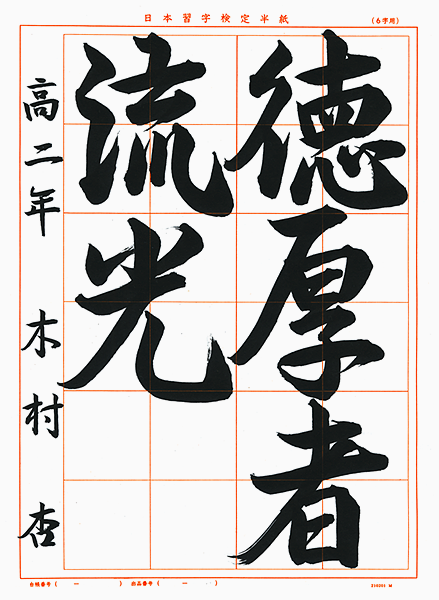 日本習字検定半紙
(6字用)
德厚者
流光
高二年 木村 杏
台帳番号 ( ー ) 出品番号 ( ー )